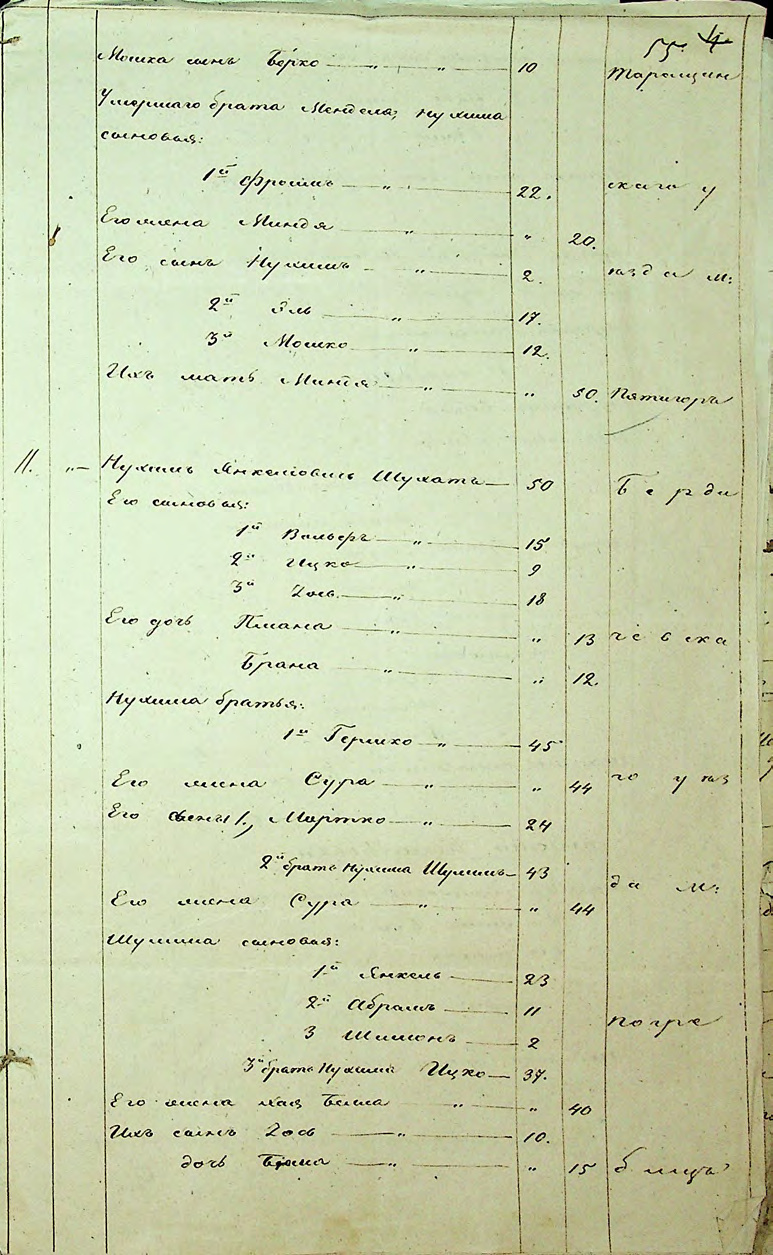 55. 4
Мошка сынъ Берко — " — " — 10 Таращан
Умершаго брата Менделя, Нухима
сыновья:
1й Фроимъ — " — 22. скаго у
Его жена Миндя — " — " 20.
Его сынъ Нухимъ — " — 2. ѣзда м:
2й Эль — " — 17.
3й Мошко — " — 12.
Ихъ мать Миндя — " — " 50. Пятигоръ
11. "— Нухимъ Янкелевичъ Шухатъ — 50 Берди
Его сыновья:
1й Вольфъ — " — 15
2й Ицко — " — 9
3й Зось — " — 18
Его дочь — " — " 13 чевска
Брана — " — " 12.
Нухима братья:
1й Гершко — " — 45
Его жена Сура — " — " 44 го уѣз
Его сыны 1, Мортко — " — 24
2й братъ Нухима Шулимъ — 43 да м:
Его жена Сура — " — " 44
Шулима сыновья:
1й Янкель — 23
2й Абрамъ — 11 погре
3 Шимонъ — 2
3й братъ Нухима Ицко — 37.
Его жена Хая Бейла — " — " 40
Ихъ сынъ Зось — " — 10.
дочь — " — " 15 бищъ